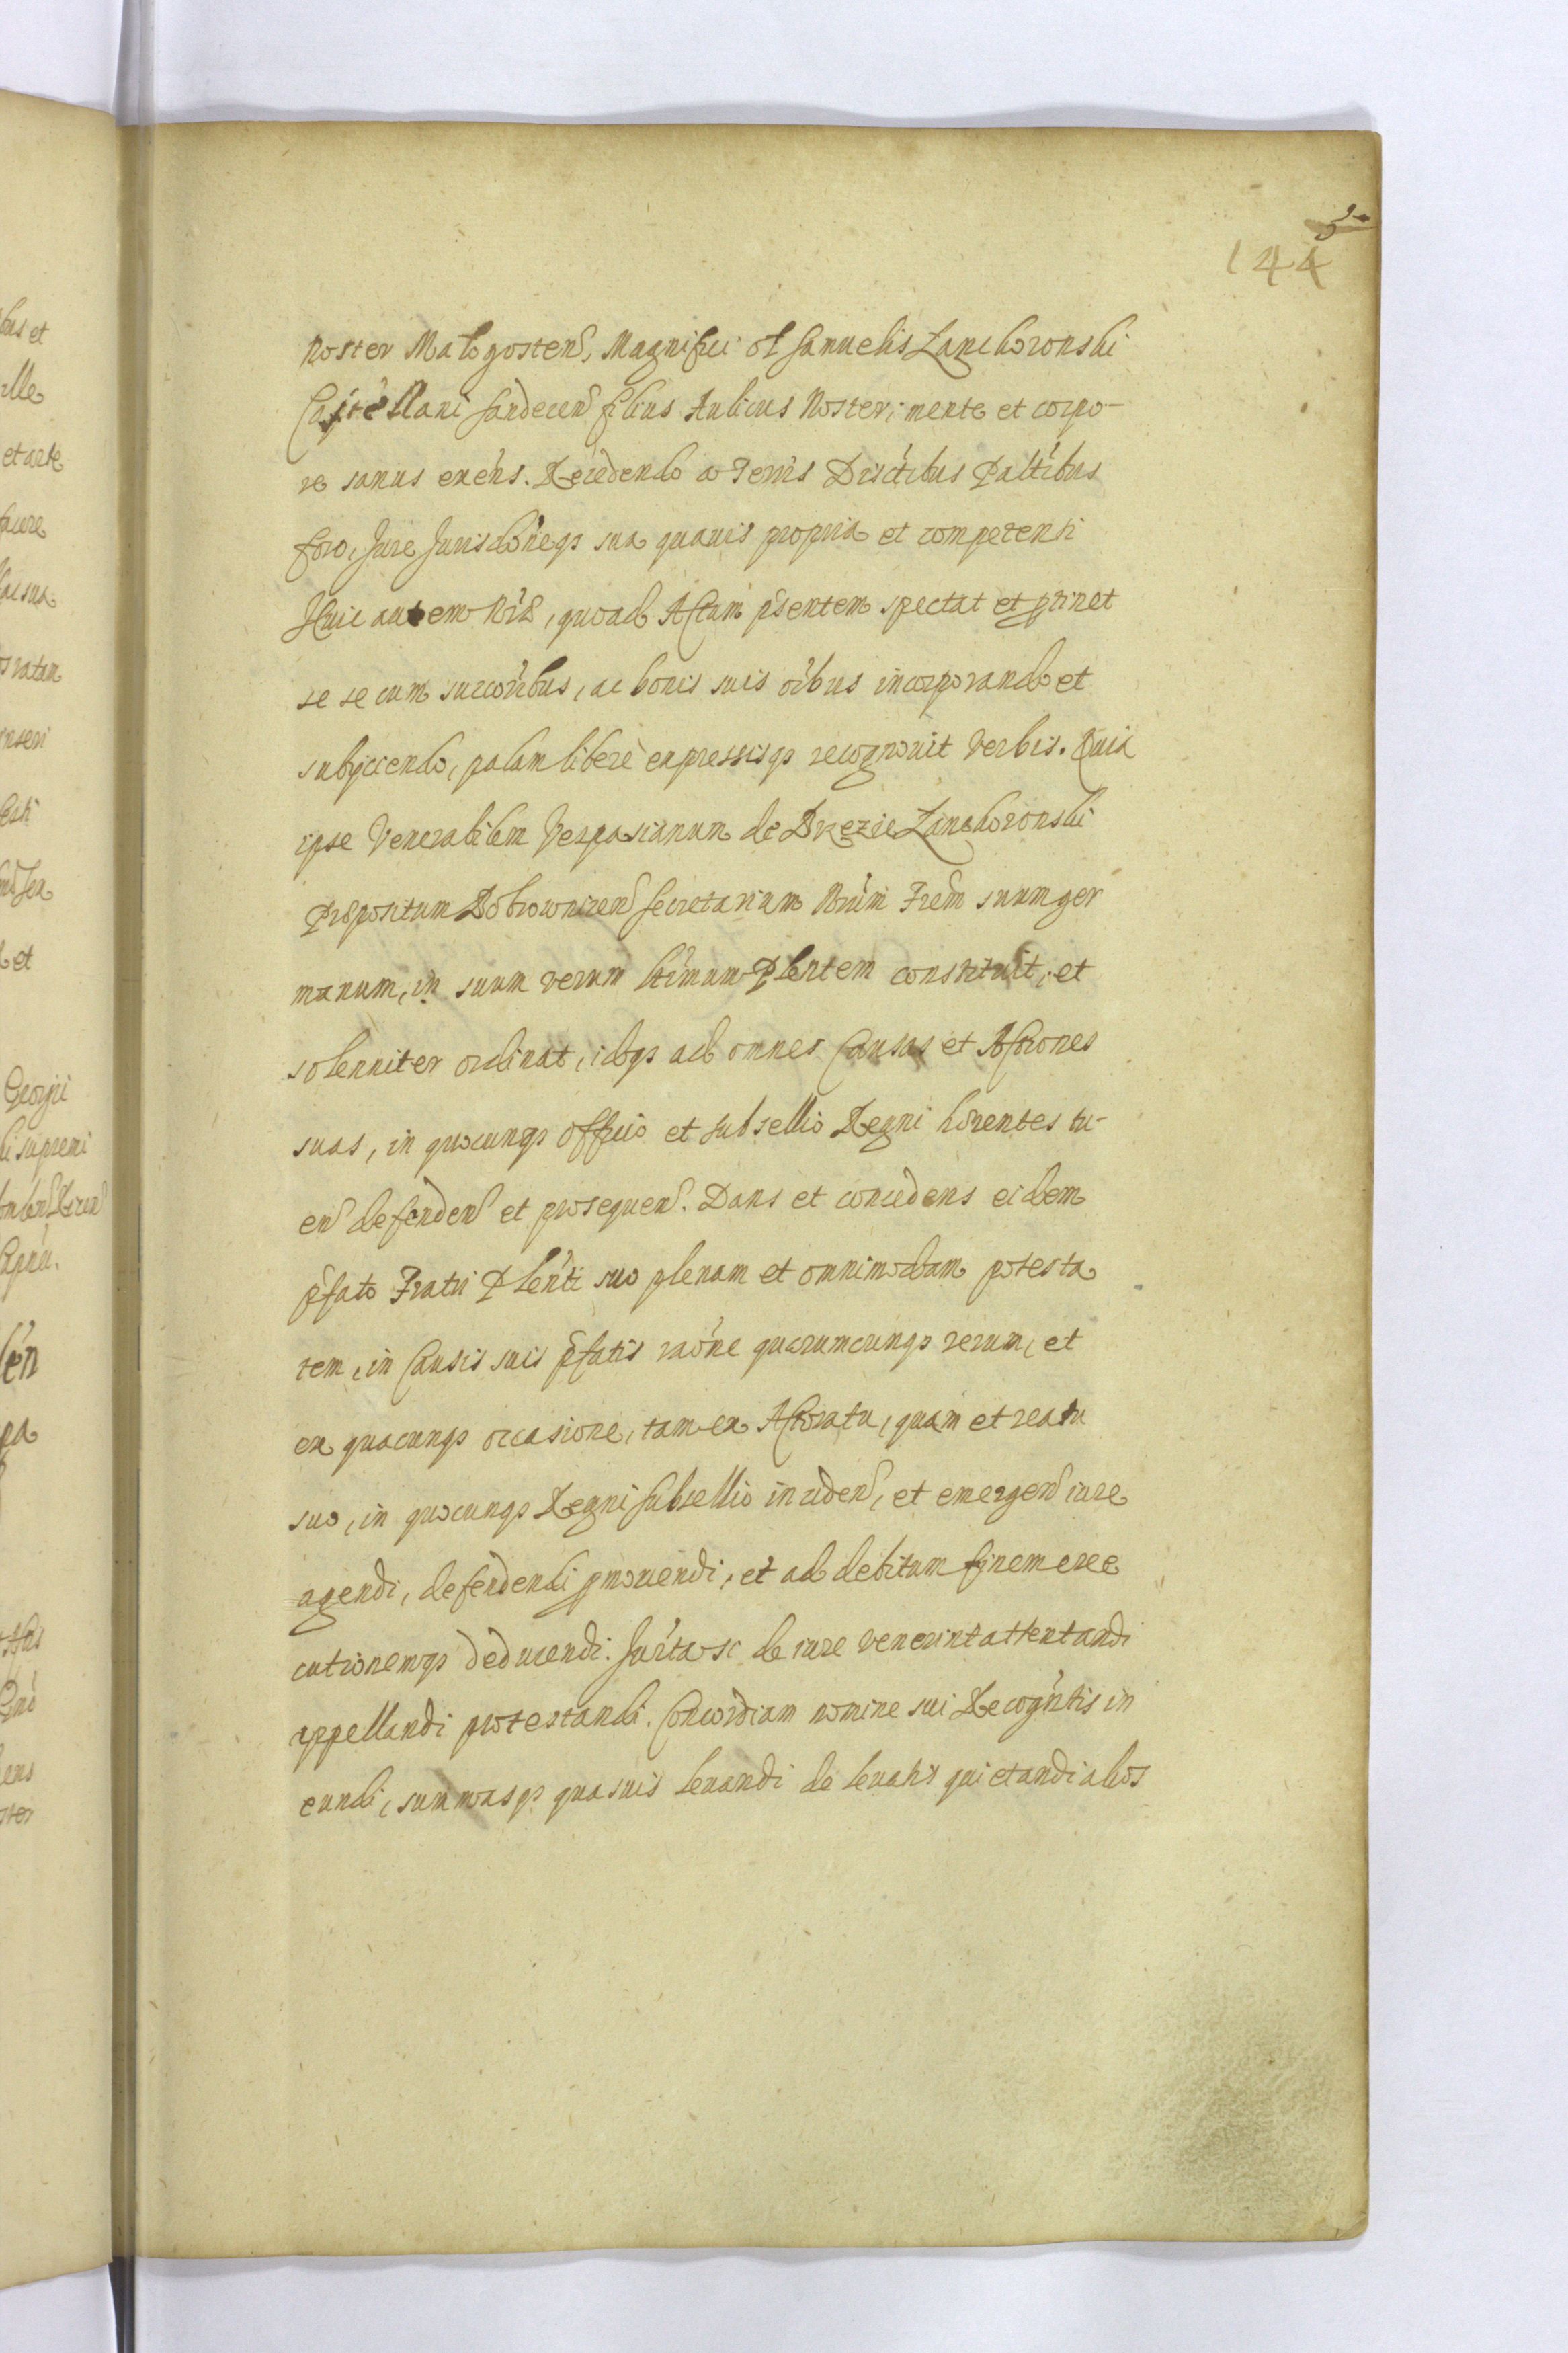 144
noster Małogosten, Magnifici ol Samuelis Lanckoronski
Castellani Sandecen filius Aulicus Noster, mente et corpo-
re sanus exens. Recedendo a Terris Districtibus Palatibus
foro, Jure Jurisdoneqз sua quauis propria et competenti
Huic autem Nrae, quoad Actum psentem spectat et ptinet
se se cum succoribus, ac bonis suis oibus incorporando et
subyciendo, palam libere expressisqз recognouit verbis. Quia
ipse Venerabilem Vespasianum de Brzezie Lanckoronski
Praepositum Dobrowicen Secretarium Nrum Frem suum ger
manum, in suum verum ltimum Plentem constituit, et
solenniter ordinat, idqз ad omnes Causas et Actiones
suas, in quocunqз officio et subsellio Regni horentes tu-
en defenden et prosequen. Dans et concedens eidem
pfato Fratri Plenti suo plenam et omnimodam potesta
tem, in Causis suis pfatis raone quarumcunqз rerum, et
ex quacunqз occasione, tam ex Actoratu, quam et reatu
suo, in quocunqз Regni Subsellio inciden, et emergen iure
agendi, defendendi pmouendi, et ad debitum finem exe
cutionemqз deducendi. Jurta si de iure venerint attentandi
appellandi protestandi. Concordiam nomine sui Recogntis in
eundi, summasqз quasuis leuandi de leuatis quietandi alios